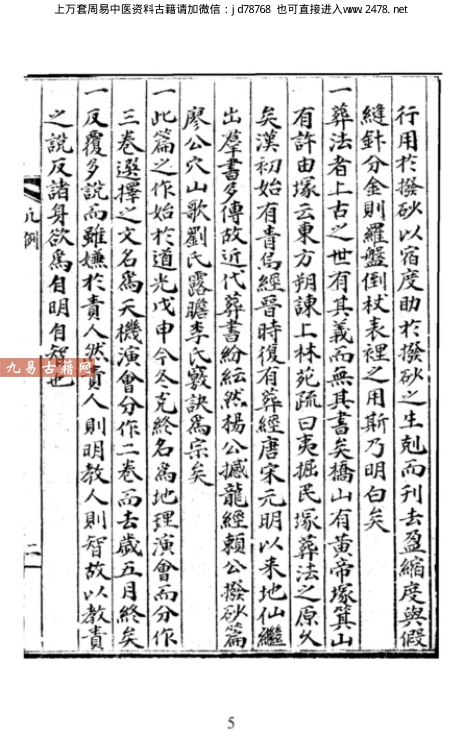 上万套周易中医资料古籍请加微信：jd78768 也可直接进入www.2478.net
行用於撥砂以宿度助於撥砂之生剋而刊去盈縮度與假
縫針分金則羅盤倒杖表裡之用斯乃明白矣
一葬法者上古之世有其義而無其書矣橋山有黃帝塚箕山
有許由塚云東方朔諫上林苑疏曰夷掘民塚葬法之原久
矣漢初始有青烏經晉時復有葬經唐宋元明以來地仙繼
出羣書多傳故近代葬書紛紜然楊公撼龍經賴公撥砂篇
廖公穴山歌劉氏露膽李氏竅訣爲宗矣
一此篇之作始於道光戊申今冬克終名爲地理演會而分作
三卷選擇之文名爲天機演會分作二卷而去歲五月終矣
一反覆多說而雖嫌於責人然責人則明教人則智故以教責
之說反諸身欲爲自明自智也
凡例
二
九易古籍网
5